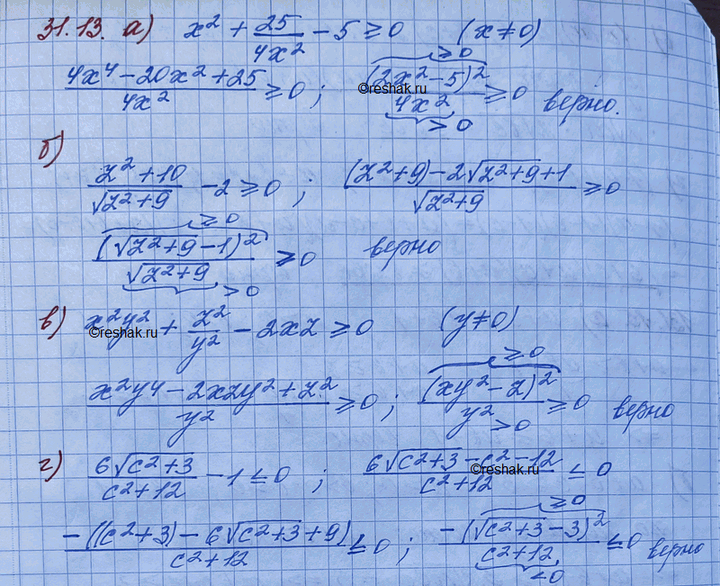 31.13. а) x² + 25/4x² − 5 ≥ 0 (x ≠ 0)
(4x⁴ − 20x² + 25)/4x² ≥ 0 ; (2x² − 5)²/4x² ≥ 0 верно.
≥ 0
> 0
reshak.ru
б)
(z² + 10)/√(z² + 9) − 2 ≥ 0 ; ((z² + 9) − 2√(z² + 9) + 1)/√(z² + 9) ≥ 0
≥ 0
(√(z² + 9) − 1)²/√(z² + 9) ≥ 0 верно
> 0
в) x²y² + z²/y² − 2xz ≥ 0 (y ≠ 0)
reshak.ru
≥ 0
(x²y⁴ − 2xzy² + z²)/y² ≥ 0 ; (xy² − z)²/y² ≥ 0 верно
> 0
г) 6√(c² + 3)/(c² + 12) − 1 ≤ 0 ; (6√(c² + 3) − c² − 12)/(c² + 12) ≤ 0
reshak.ru
≥ 0
−((c² + 3) − 6√(c² + 3) + 9)/(c² + 12) ≤ 0 ; −(√(c² + 3) − 3)²/(c² + 12) ≤ 0 верно
< 0